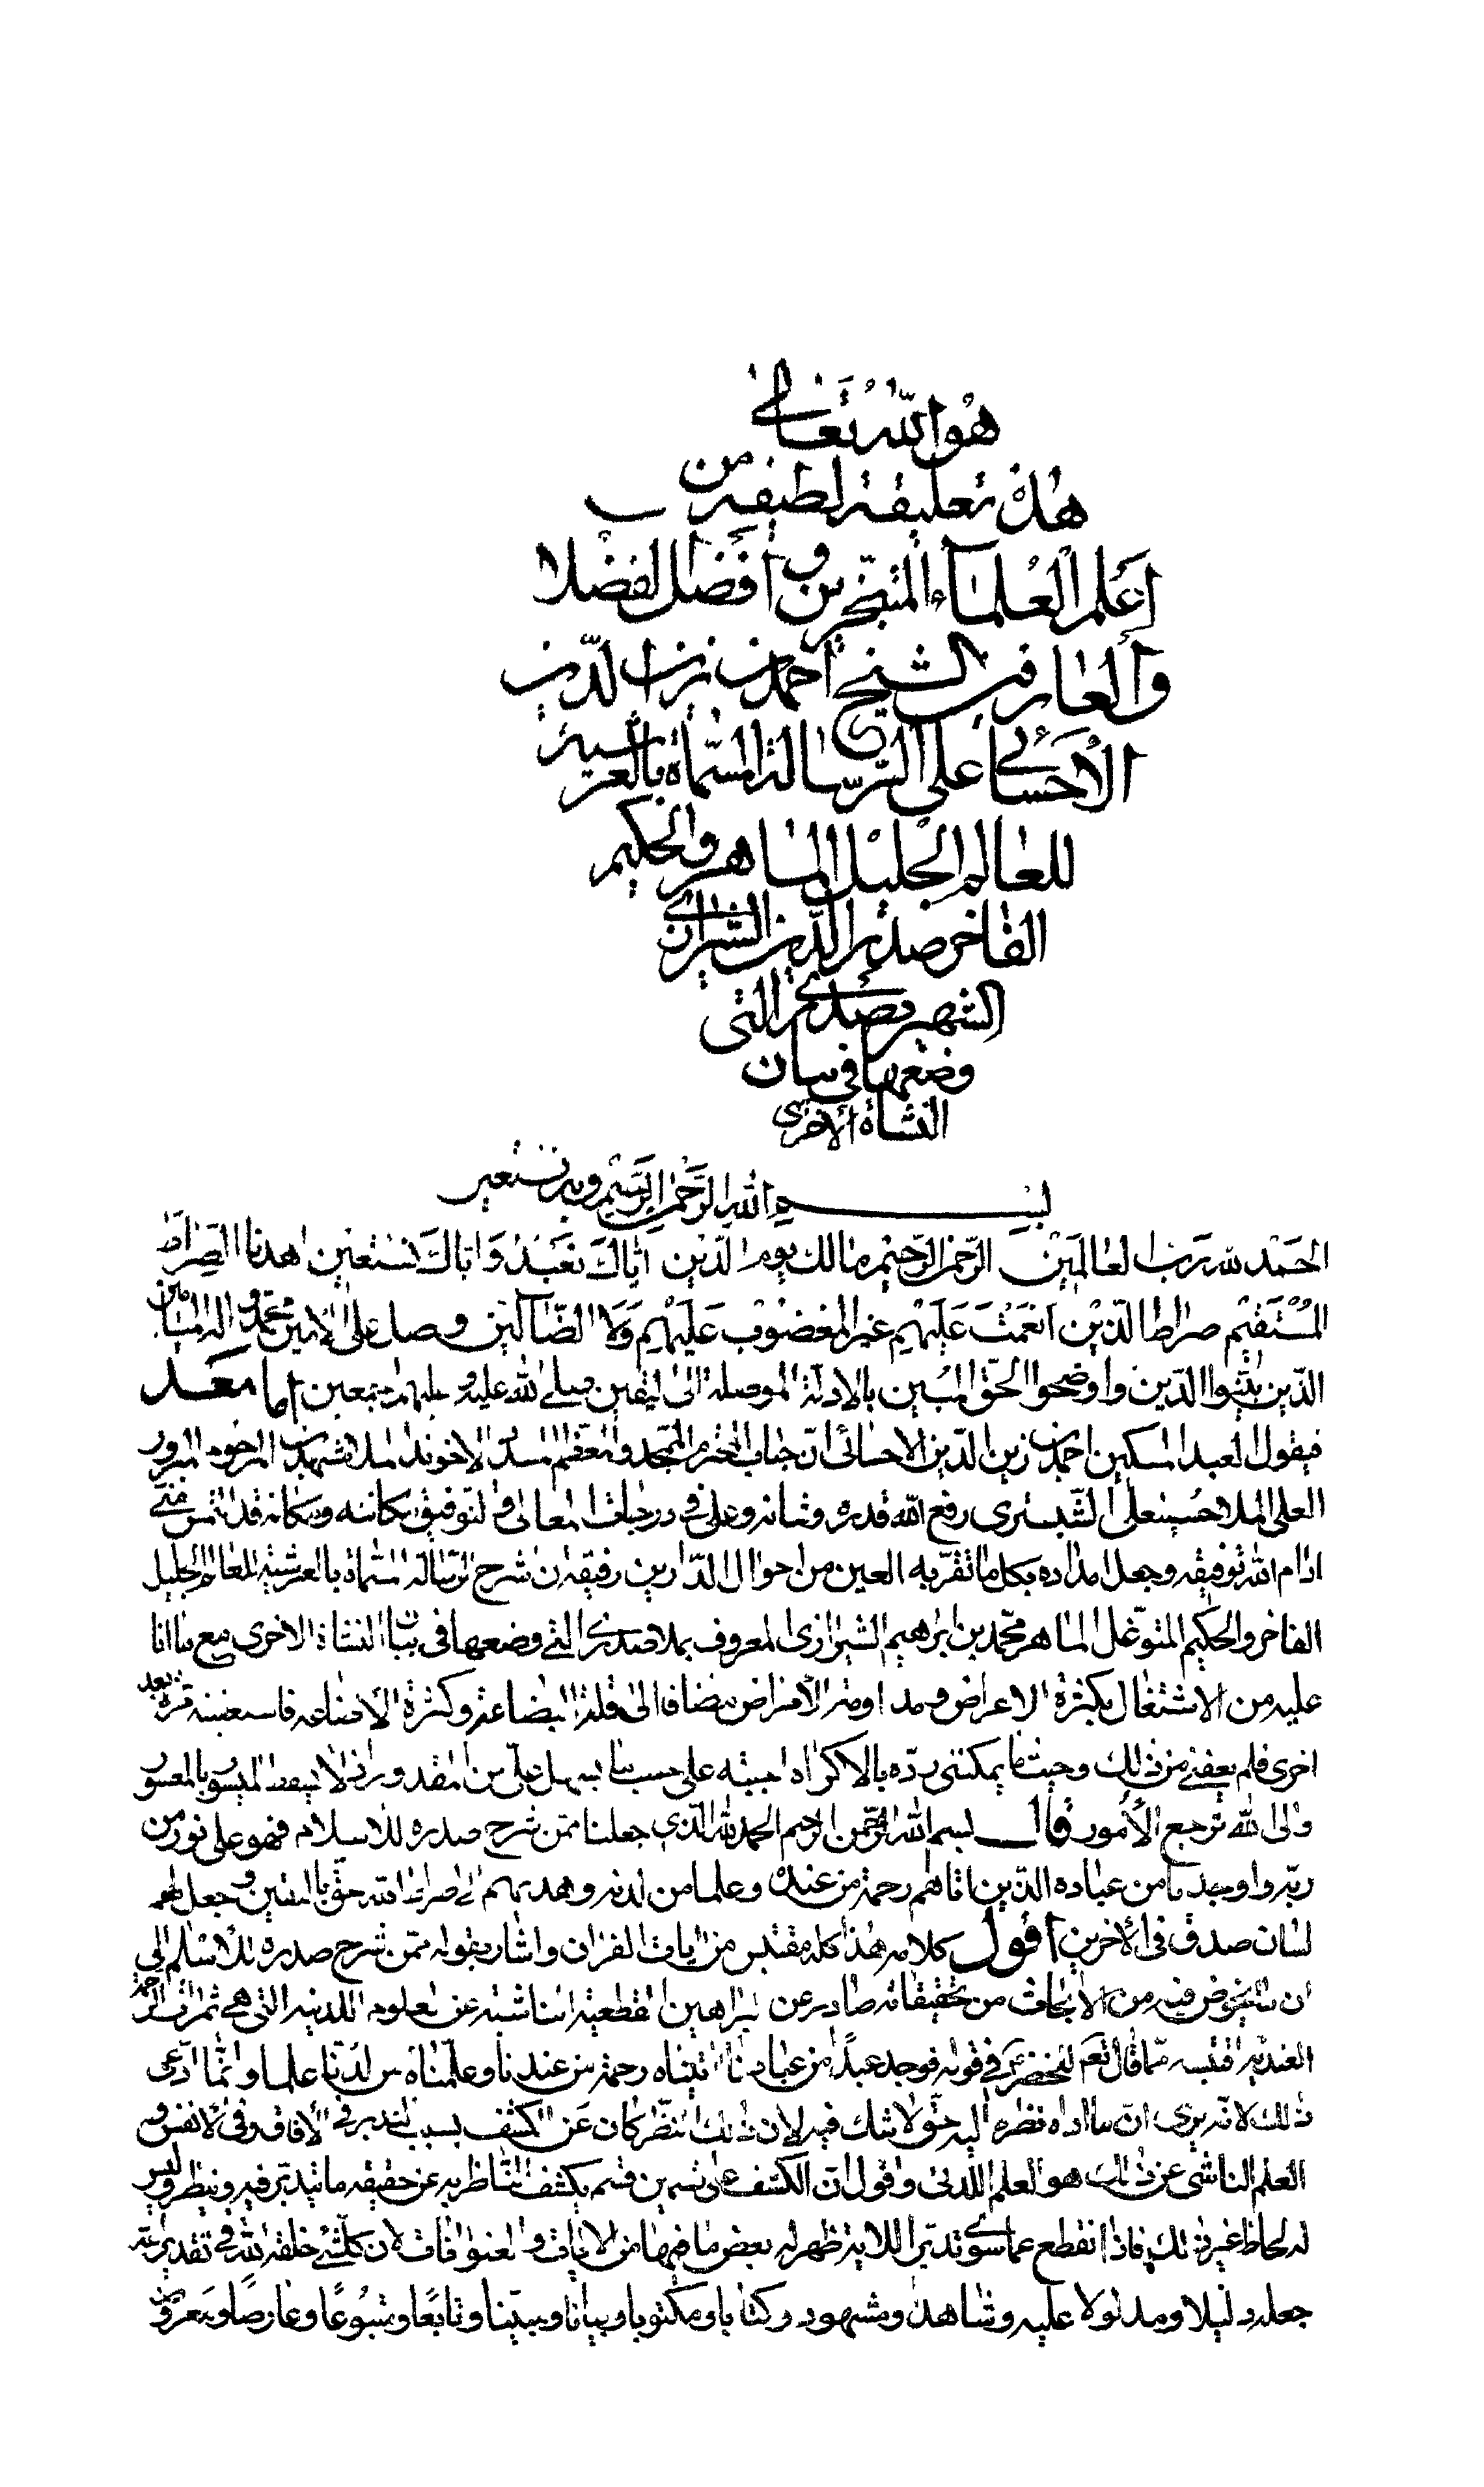 هُوَ اللّٰهُ تَعَالٰى
هٰذِهِ تعليقة لطيفة من
أعلم العلماء المتبحّرين و أفضل الفضلا
والعارفين الشيخ احمد بن زين الدّين
الأحسائي على الرّسالة المسمّاة بالعرشية
للعالم الجليل الماهر والحكيم
الفاخر صدر الدّين الشيرازى
الشهير بصدرى التى
وضعها فى بيان
النشاة الاخرى
بسم الله الرّحمن الرّحيم وبه نستعين
الحَمْد لله ربّ العالمين الرّحمن الرّحيم مالك يوم الدّين ايّاك نعبد وايّاك نستعين اهدنا الصّراط
المُسْتَقيم صراط الّذين انعمتَ عَلَيْهِم غير المغضوب عَلَيْهِم وَلَا الضّالّين وصل على الامين محمّد واله الميامين
الّذين بيّنوا الدّين واوضحوا الحقّ المبين بالادلّة الموصلة الى اليقين صلى الله عليه و عليهم اجمعين امّا بعد
فيقول العبد المسكين احمد بن زين الدّين الاحسائى انّ جناب المحترم الممجّد والمعظّم المسدّد الاخوند الملا مشهد بن المرحوم المبرور
العلى الملا حسينعلى الشّبسترى رفع الله قدره وشانه وعلى فى درجات المعالى و التوفيق مكانته ومكانه قد التمس منّى
ادام الله توفيقه وجعل امداده بكل ما تقرّبه العين من احوال الدّارين رفيقه ان اشرح الرّسالة المسمّاة بالعرشية للعالم الجليل
الفاخر والحكيم المتوغّل الماهر محمّد بن ابرهيم الشيرازى المعروف بملا صدرى التى وضعها فى بيان النشاة الاخرى مع ما انا
عليه من الاشتغال بكثرة الاعراض ومداومة الامراض مضافا الى قلة البضاعة وكثرة الاضاعة فاستعفيته مرة بعد
اخرى فلم يعفنى من ذلك وحيث لا يمكننى ردّه بالاكراه اجبته على حسب ما يسهل علىّ من المقدور اذ لا يسقط الميسور بالمعسور
والى الله ترجع الأمور قال بسم الله الرّحمن الرحيم الحمد لله الّذى جعلنا ممّن شرح صدره للاسلام فهو على نور من
ربّه واوجدنا من عباده الّذين اتاهم رحمة من عنده وعلما من لدنه وهديهم الى صراط الله حقّ اليقين و جعل لهم
لسان صدق فى الأخرين أقول كلامه هٰذا كله مقتبس من ايات القران واشار بقوله ممّن شرح صدره للاسلم الى
ان ما يخوض فيه من الابحاث من تحقيقاته صادر عن البراهين القطعية الناشئة عن العلوم اللدنية التى هى ثمرات الرحمة
العنديّة اقتبسه ممّا قال تعم للخضر ع فى قوله فوجد عبدًا من عبادنا اتيناه رحمة من عندنا وعلّمناه من لدنّا علما وانّما ادّعى
ذٰلك لانّه يرى انّ ما ادّاه نظره اليه حقّ لا شك فيه لان ذٰلك النظر كان عَن الكشف بسبب التدبر فى الأفاق وفى الانفس و
العلم الناشى عن ذٰلك هو العلم اللدنى واقول انّ الكشف على قسمين قسم يكشف النّاظر به عن حقيقة ما يتدبّر فيه وينظر وليس
له لحاظ غير ذٰلك فاذا انقطع عمّا سوى تدبّر اللاية ظهر له بعض ما فيها من الايات والعنوانات لان كلّشئ خلقه الله فى تقديراته
جعله دليلا ومدلولا عليه وشاهدا ومشهودا وكتابا ومكتوبا وبيانا ومبيّنا وتابعًا ومتبوعًا وعارضًا ومعروضًا